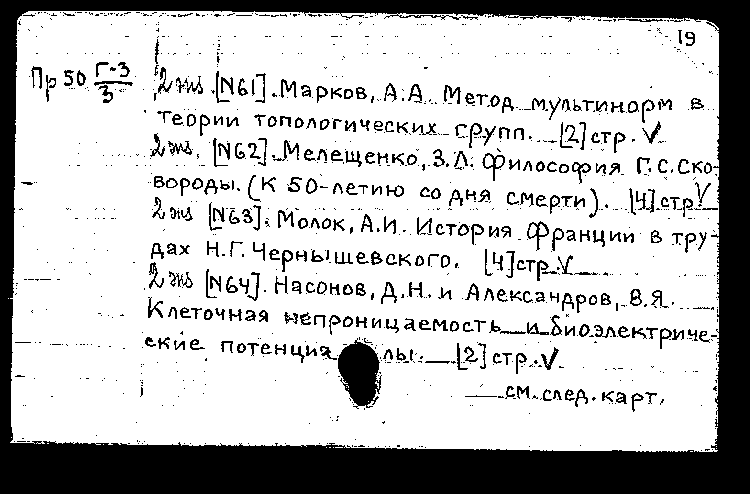 19
Пр 50 Г-3/3
2 экз. [№61]. Марков, А.А. Метод мультинорм в
теории топологических групп. [2] стр. V
2 экз. [№62]. Мелещенко, З.Л. Философия Г.С. Ско-
вороды. (К 50-летию со дня смерти). [4] стр V
2 экз [№63]. Молок, А.И. История Франции в тру-
дах Н.Г. Чернышевского. [4] стр. V
2 экз [№64]. Насонов, Д.Н. и Александров, В.Я.
Клеточная непроницаемость и биоэлектриче-
ские потенциалы. [2] стр. V
см. след. карт.